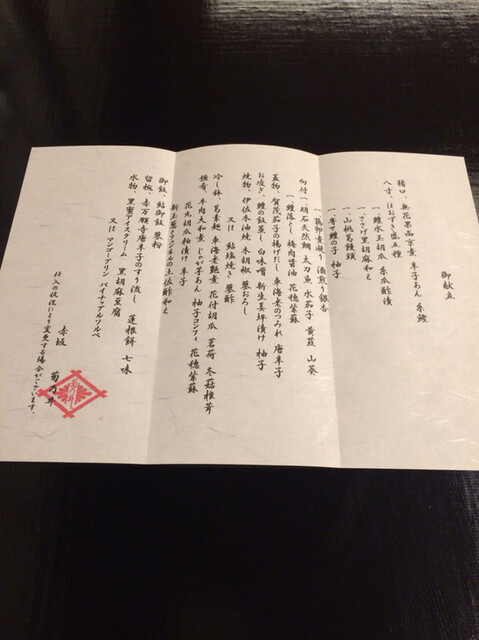 御献立
猪口、無花果西京煮 辛子あん 糸鰹
八寸、ほおずき盛五種
一、鱧水玉胡瓜 糸瓜酢漬
一、ささげ黒胡麻和え
一、山桃葛饅頭
一、寄せ鱧の子 柚子
一、鶏卵煮凝り 酒煎り銀杏
向付、一、明石天然鯛 太刀魚 水茄子 黄菊 山葵
一、鱧落とし 梅肉醤油 花穂紫蘇
蓋物、賀茂茄子の揚げだし 車海老のつみれ 唐辛子
お凌ぎ、鱧の飯蒸し 白味噌 新生姜 漬け 柚子
焼物、伊佐木油焼 木胡椒 蓼おろし
又は 鮎塩焼き 蓼酢
冷し鉢、葛素麺 車海老艶煮 花付胡瓜 茗荷 冬菇椎茸
強肴、牛肉大和煮 じゃが芋あん 柚子コンフィ 花穂紫蘇
花丸胡瓜粕漬け 辛子
新玉葱とクレソンの土佐酢和え
御飯、鮎御飯 蓼粉
留椀、赤万願寺唐辛子のすり流し 蓮根餅 七味
水物、黒蜜アイスクリーム 黒胡麻豆腐
又は マンゴープリン パイナップルソルベ
赤坂 菊乃井
仕入の状況により変更する場合がございます。